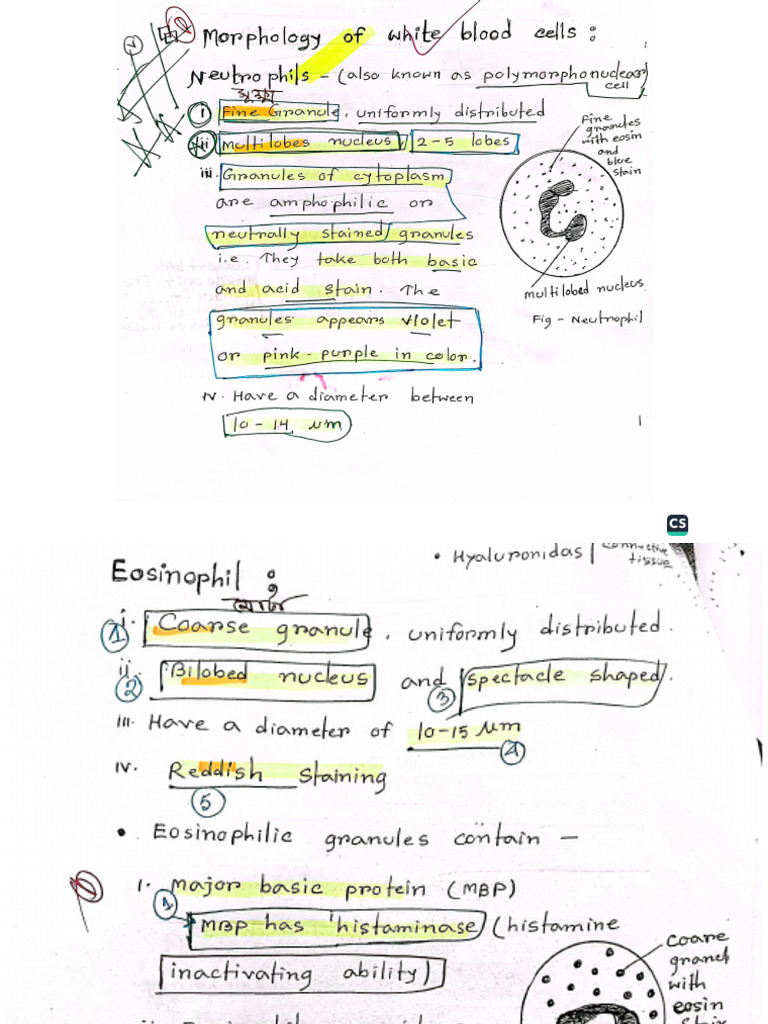 Morphology of white blood cells:
Neutrophils - (also known as polymorphonuclear
cell
i Fine Granule, uniformly distributed
ii multilobes nucleus, 2-5 lobes
iii. Granules of cytoplasm
are amphophilic or
neutrally stained granules
i.e. They take both basic
and acid stain. The
granules appears violet
or pink-purple in color.
iv. Have a diameter between
10-14 µm
Fine
granules
with eosin
and
blue
stain
multilobed nucleus
Fig - Neutrophil
1
CS
• Hyaluronidas
connective
tissue
Eosinophil :
i. Coarse granule, uniformly distributed.
1
ii. Bilobed nucleus and spectacle shaped.
2
3
iii. Have a diameter of 10-15 µm
4
iv. Reddish staining
5
• Eosinophilic granules contain -
i. Major basic protein (MBP)
1
MBP has histaminase (histamine
inactivating ability)
coare
granel
with
eosin